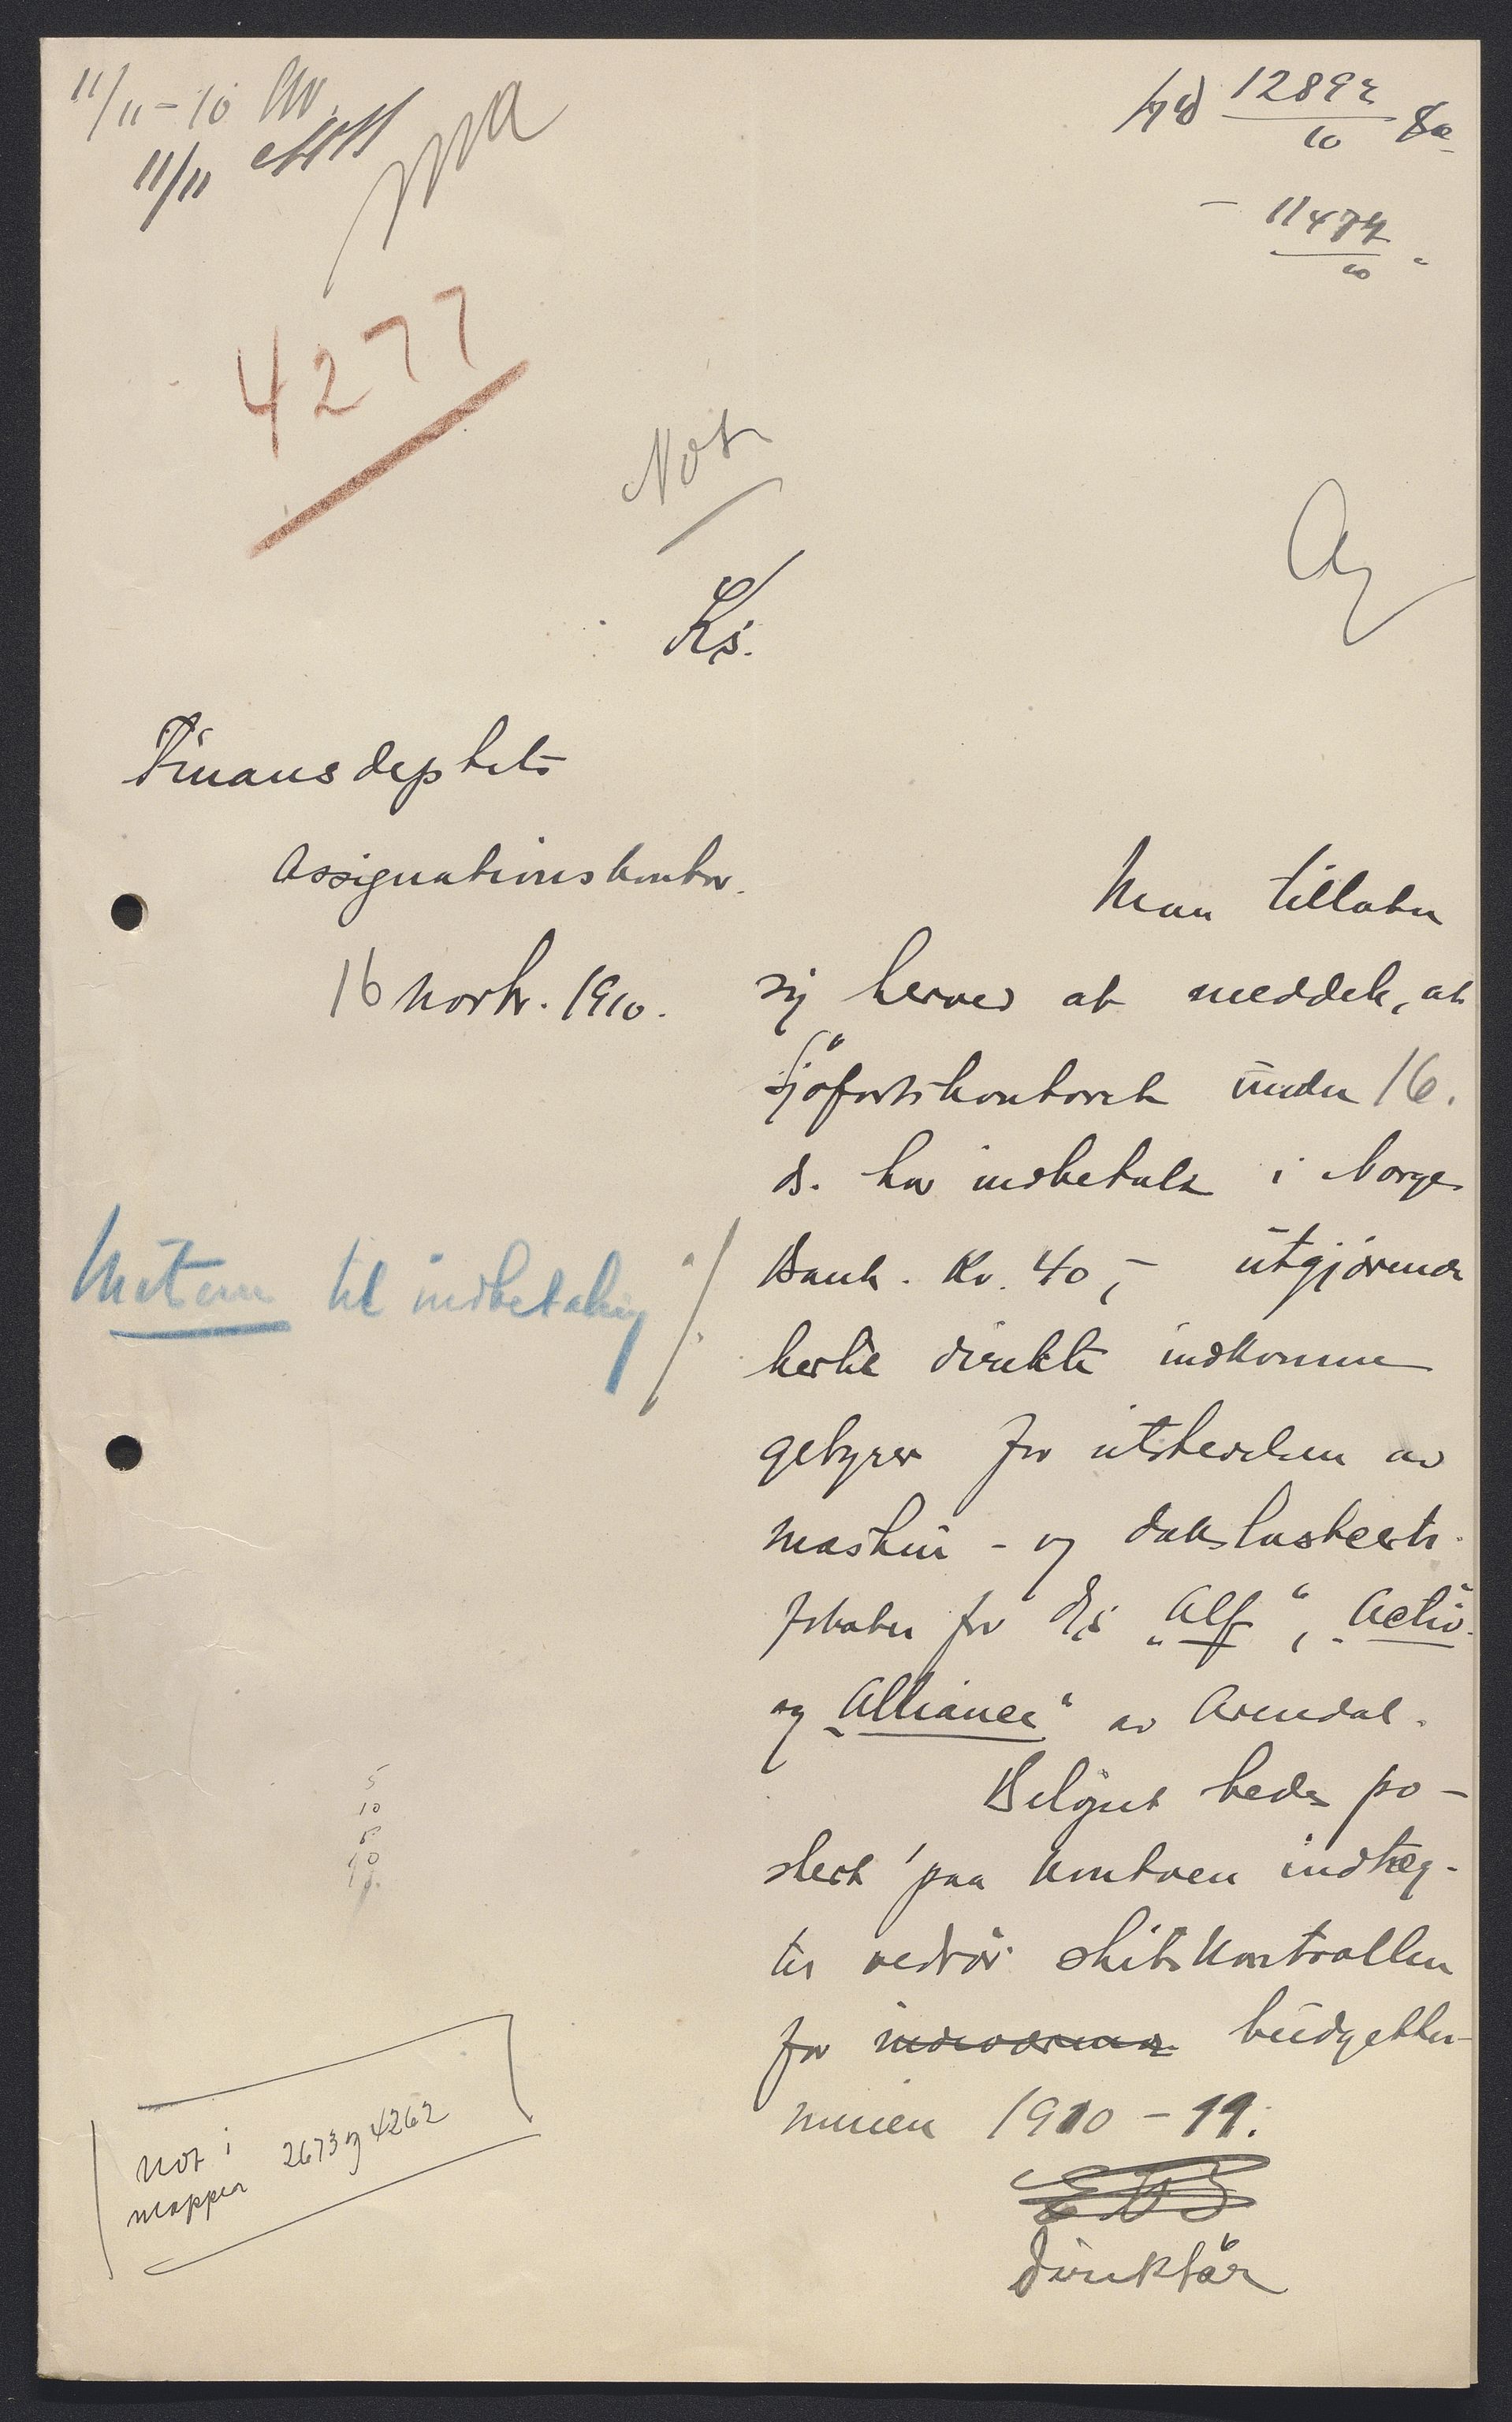 11/11-10
11/11
12892
10
- 11474
10
4277
Not
Ks.
Finansdeptets
Assignationskontor.
16 novbr. 1910.
Man tillater
sig herved at meddele, at
Sjöfartskontoret under 16.
ds. har indbetalt i Norges
Bank Kr. 40,- utgjörende
hertil direkte indkomne
gebyrer for utstedelsen av
maskin- og dækslastcerti-
fikater for D/S "Alf", "Activ"
og "Alliance" av Arendal.
Belöpet bedes po-
stert paa kontoen indtæg-
ter vedrör. skibskontrollen
for budgetter-
minen 1910-11.
Direktör
til indbetaling ./.
5
10
5
10
Not i
mapper 2673 og 4262